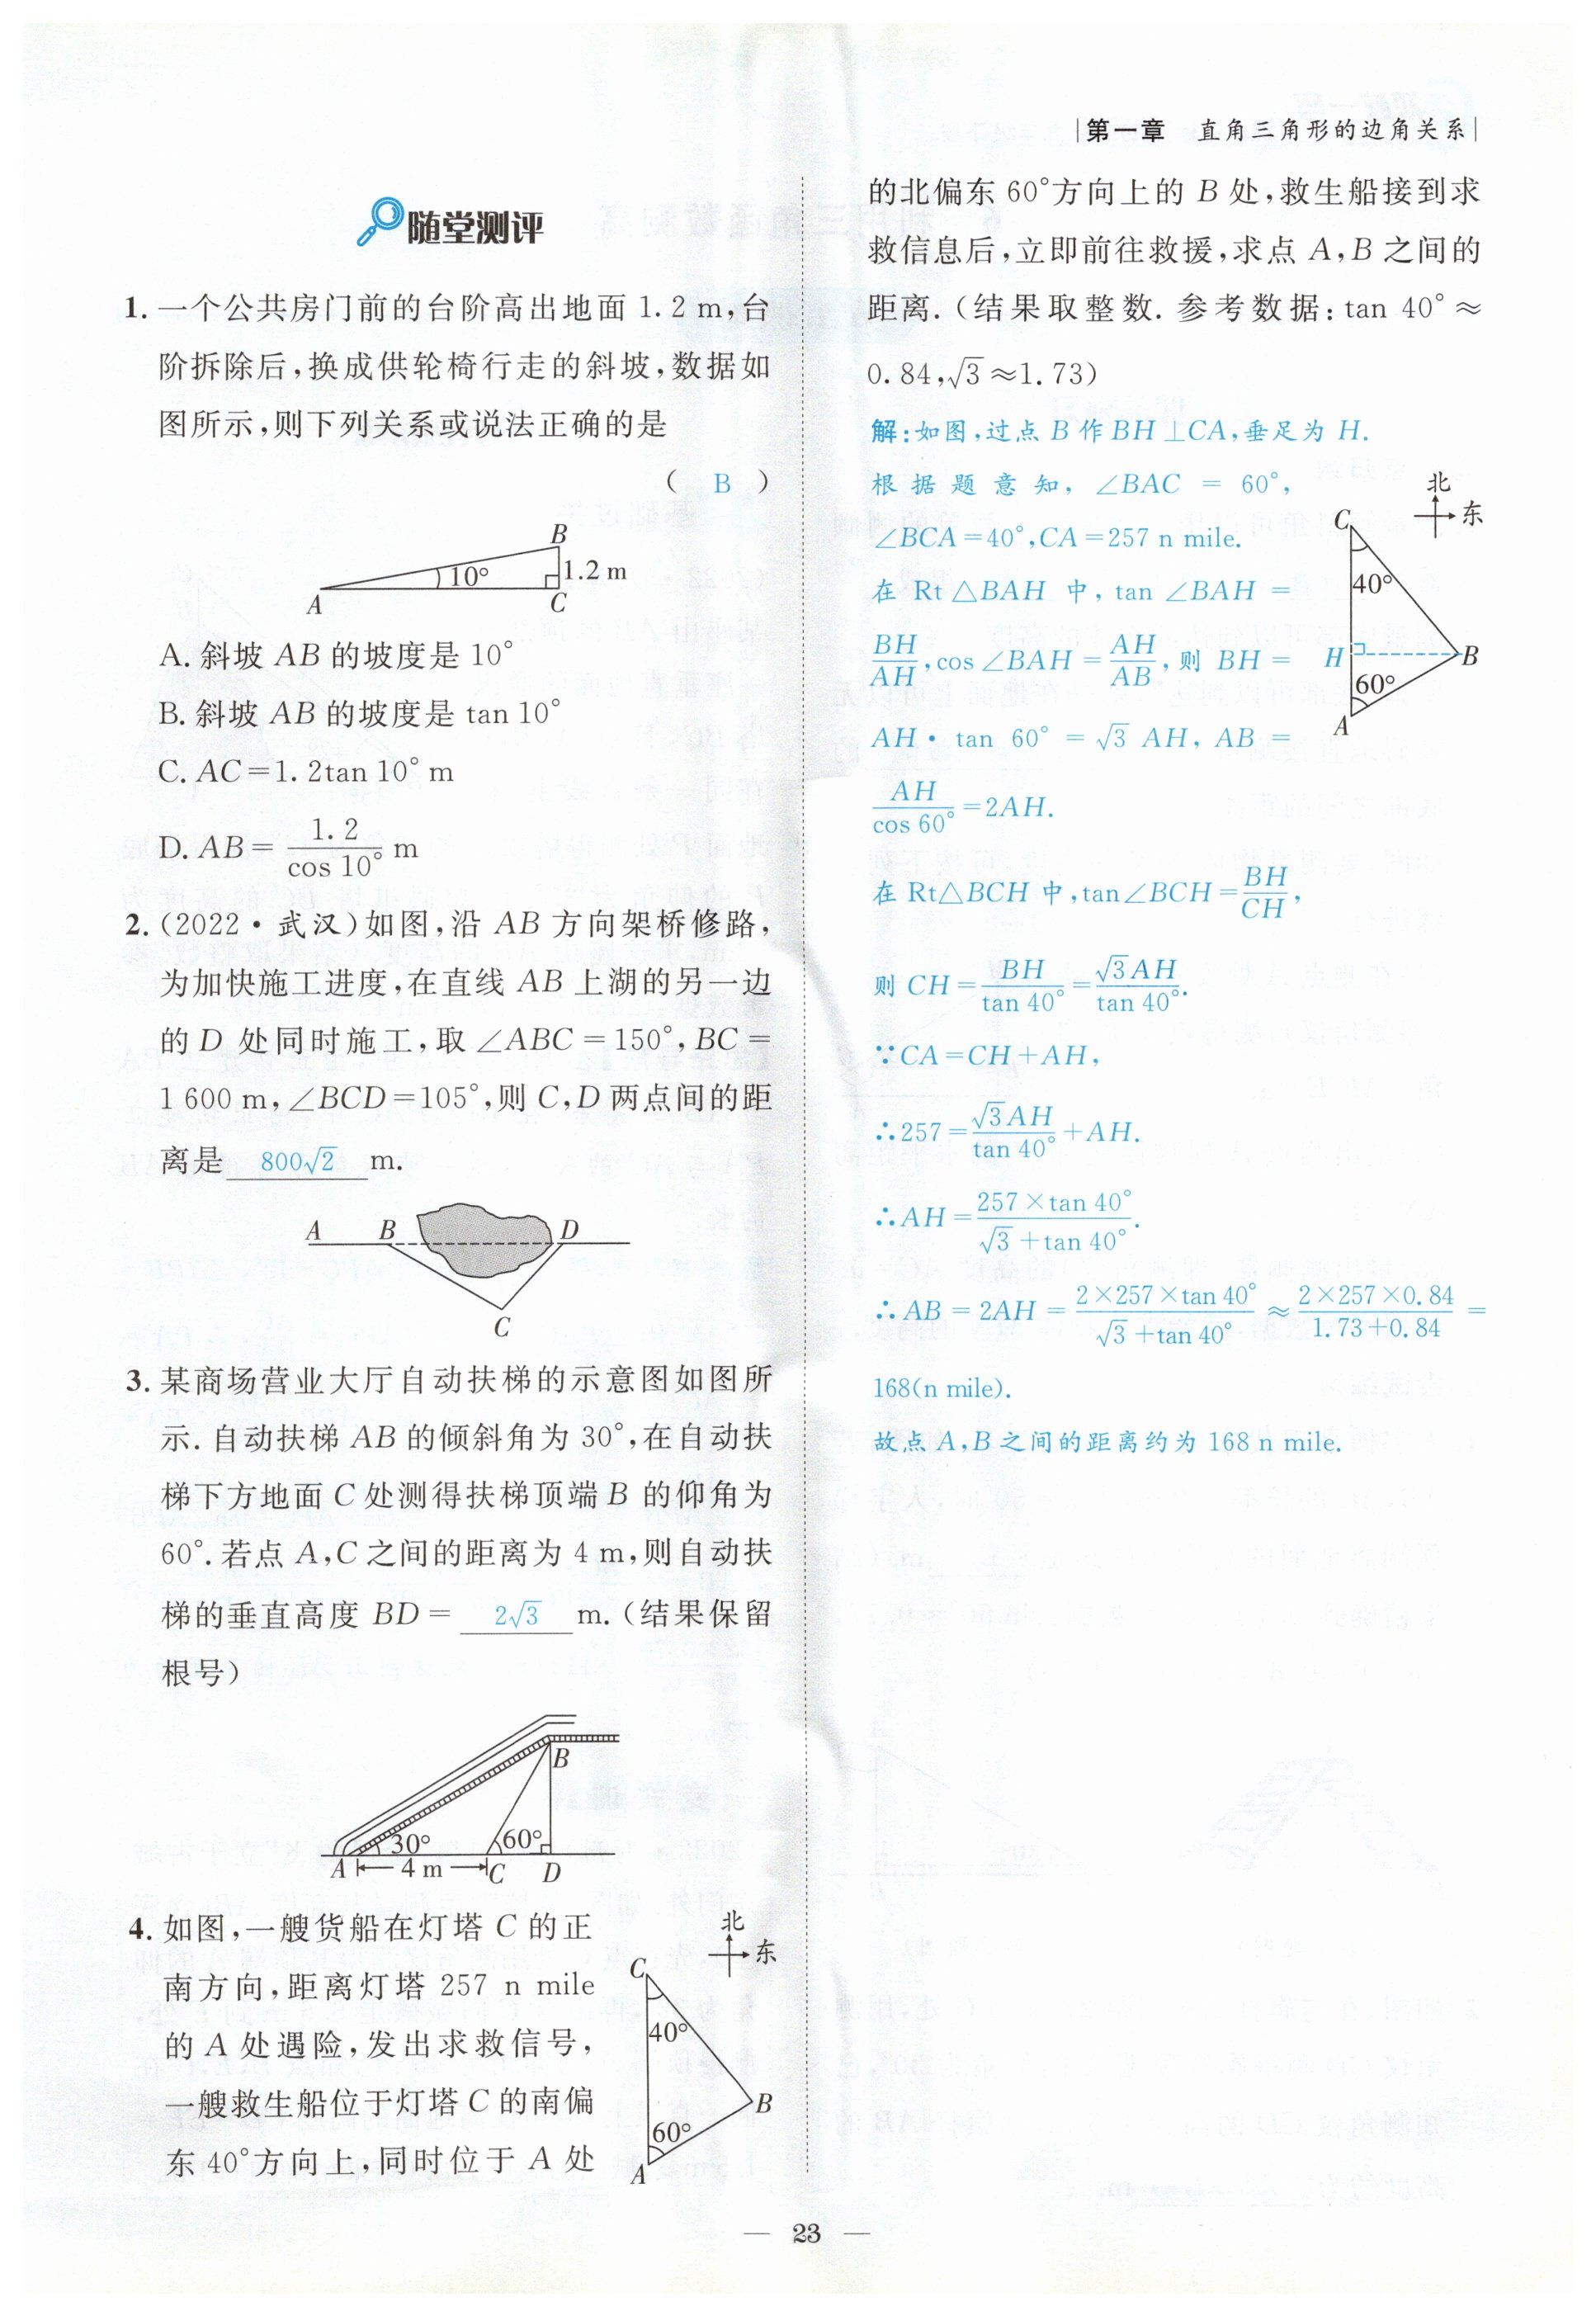 第一章 直角三角形的边角关系
随堂测评
1. 一个公共房门前的台阶高出地面 1.2 m,台
阶拆除后,换成供轮椅行走的斜坡,数据如
图所示,则下列关系或说法正确的是
( B )
B
10°
1.2 m
A
C
A. 斜坡 AB 的坡度是 10°
B. 斜坡 AB 的坡度是 tan 10°
C. AC=1.2tan 10° m
D. AB= 1.2/cos 10° m
2. (2022·武汉)如图,沿 AB 方向架桥修路,
为加快施工进度,在直线 AB 上湖的另一边
的 D 处同时施工,取 ∠ABC=150°,BC=
1 600 m,∠BCD=105°,则 C,D 两点间的距
离是 800√2 m.
A B D
C
3. 某商场营业大厅自动扶梯的示意图如图所
示. 自动扶梯 AB 的倾斜角为 30°,在自动扶
梯下方地面 C 处测得扶梯顶端 B 的仰角为
60°. 若点 A,C 之间的距离为 4 m,则自动扶
梯的垂直高度 BD= 2√3 m.(结果保留
根号)
B
30° 60°
A 4 m C D
4. 如图,一艘货船在灯塔 C 的正
南方向,距离灯塔 257 n mile
的 A 处遇险,发出求救信号,
一艘救生船位于灯塔 C 的南偏
东 40°方向上,同时位于 A 处
北
东
C
40°
B
60°
A
的北偏东 60°方向上的 B 处,救生船接到求
救信息后,立即前往救援,求点 A,B 之间的
距离.(结果取整数. 参考数据:tan 40°≈
0.84,√3≈1.73)
解:如图,过点 B 作 BH⊥CA,垂足为 H.
根据题意知,∠BAC = 60°,
∠BCA=40°,CA=257 n mile.
在 Rt△BAH 中,tan ∠BAH =
BH/AH,cos∠BAH=AH/AB,则 BH =
AH· tan 60° = √3 AH, AB =
AH/cos 60°=2AH.
北
东
C
40°
H
B
60°
A
在 Rt△BCH 中,tan∠BCH=BH/CH,
则 CH=BH/tan 40°=√3AH/tan 40°.
∵CA=CH+AH,
∴257=√3AH/tan 40°+AH.
∴AH=257×tan 40°/√3+tan 40°.
∴AB = 2AH = 2×257×tan 40°/√3+tan 40° ≈ 2×257×0.84/1.73+0.84 =
168(n mile).
故点 A,B 之间的距离约为 168 n mile.
— 23 —